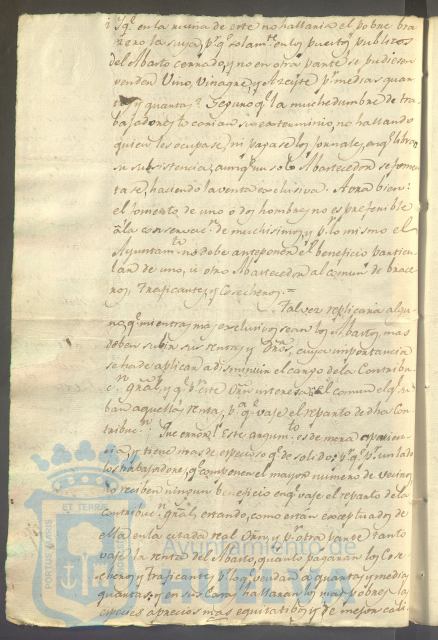 ¿Y qe. en la ruina de este no hallaria el pobre bra
zero la suya, pr. qe. solamte. en los puertos publicos
del Abasto cerrado, y no en otra parte se pudiesen
vender Vino, Vinagre, y Azeite pr. medias quar
tas y quartas? Seguro qe. la muchedumbre de tra
bajadores to corrian su exterminio, no hallando
quien les ocupase, ni pagase los jornales, en qe. libran
su subsistencia, aunqe. un solo Abastecedor se fomen
tase, haciendo la venta exclusiva. Ahora bien:
el fomento de uno ó dos hombres, no es preferible
á la conservacn. de muchisimos, y pr. lo mismo el
Ayuntamto. no debe anteponer el beneficio particu
lar de uno, u otro Abastecedor al comun de brace
ros, Traficantes, y Cosecheros.=
Talvez replicaria algu
no, qe. mientras mas exclusivos sean los Abastos, mas
deben subir sus rentas y dros., cuya importancia
se ha de aplicar a disminuir el cargo de la Contribu
cn. gral, y qe. pr. este orn. interesa el comun el qe. su
ban aquellas rentas, pa. qe. vaje el reparto de dha Con
tribucn. Que error! Este argumto. es de mera aparien
cia, y tiene mas de especioso qe. de solido; pr. qe. pr. un lado
los trabajadores, qe. componen el mayor numero de Vecinos
no reciben ningun beneficio en qe. vaje el reparto de la
contribucn. gral, estando, como están exceptuados de
ella en la citada real Orn. y pr. otra parte tanto
vaje la renta del Abasto, quanto pagaran los Cose
cheros y Traficantes pr. lo qe. vendan a quartas y medias
quartas; y en sus Casas hallaran los mas pobres las
especies á precios mas equitatibos y de mejor cali
PORTUS MAGIS ET TERRA
Ayuntamiento de